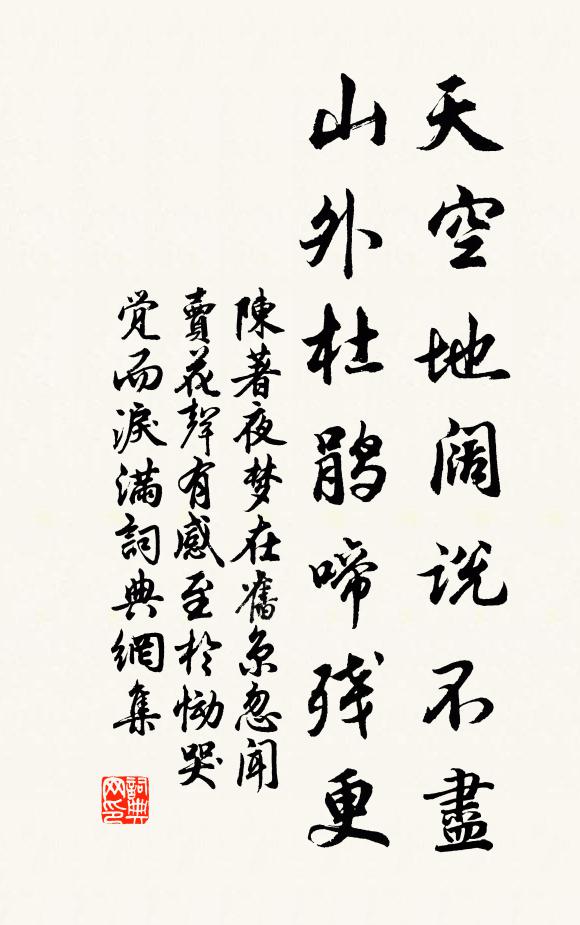 天空地阔说不盡
山外杜鹃啼残更
陳著夜梦在舊京忽聞
賣花聲有感至於恸哭
觉而淚满詞典網集
詞典网印